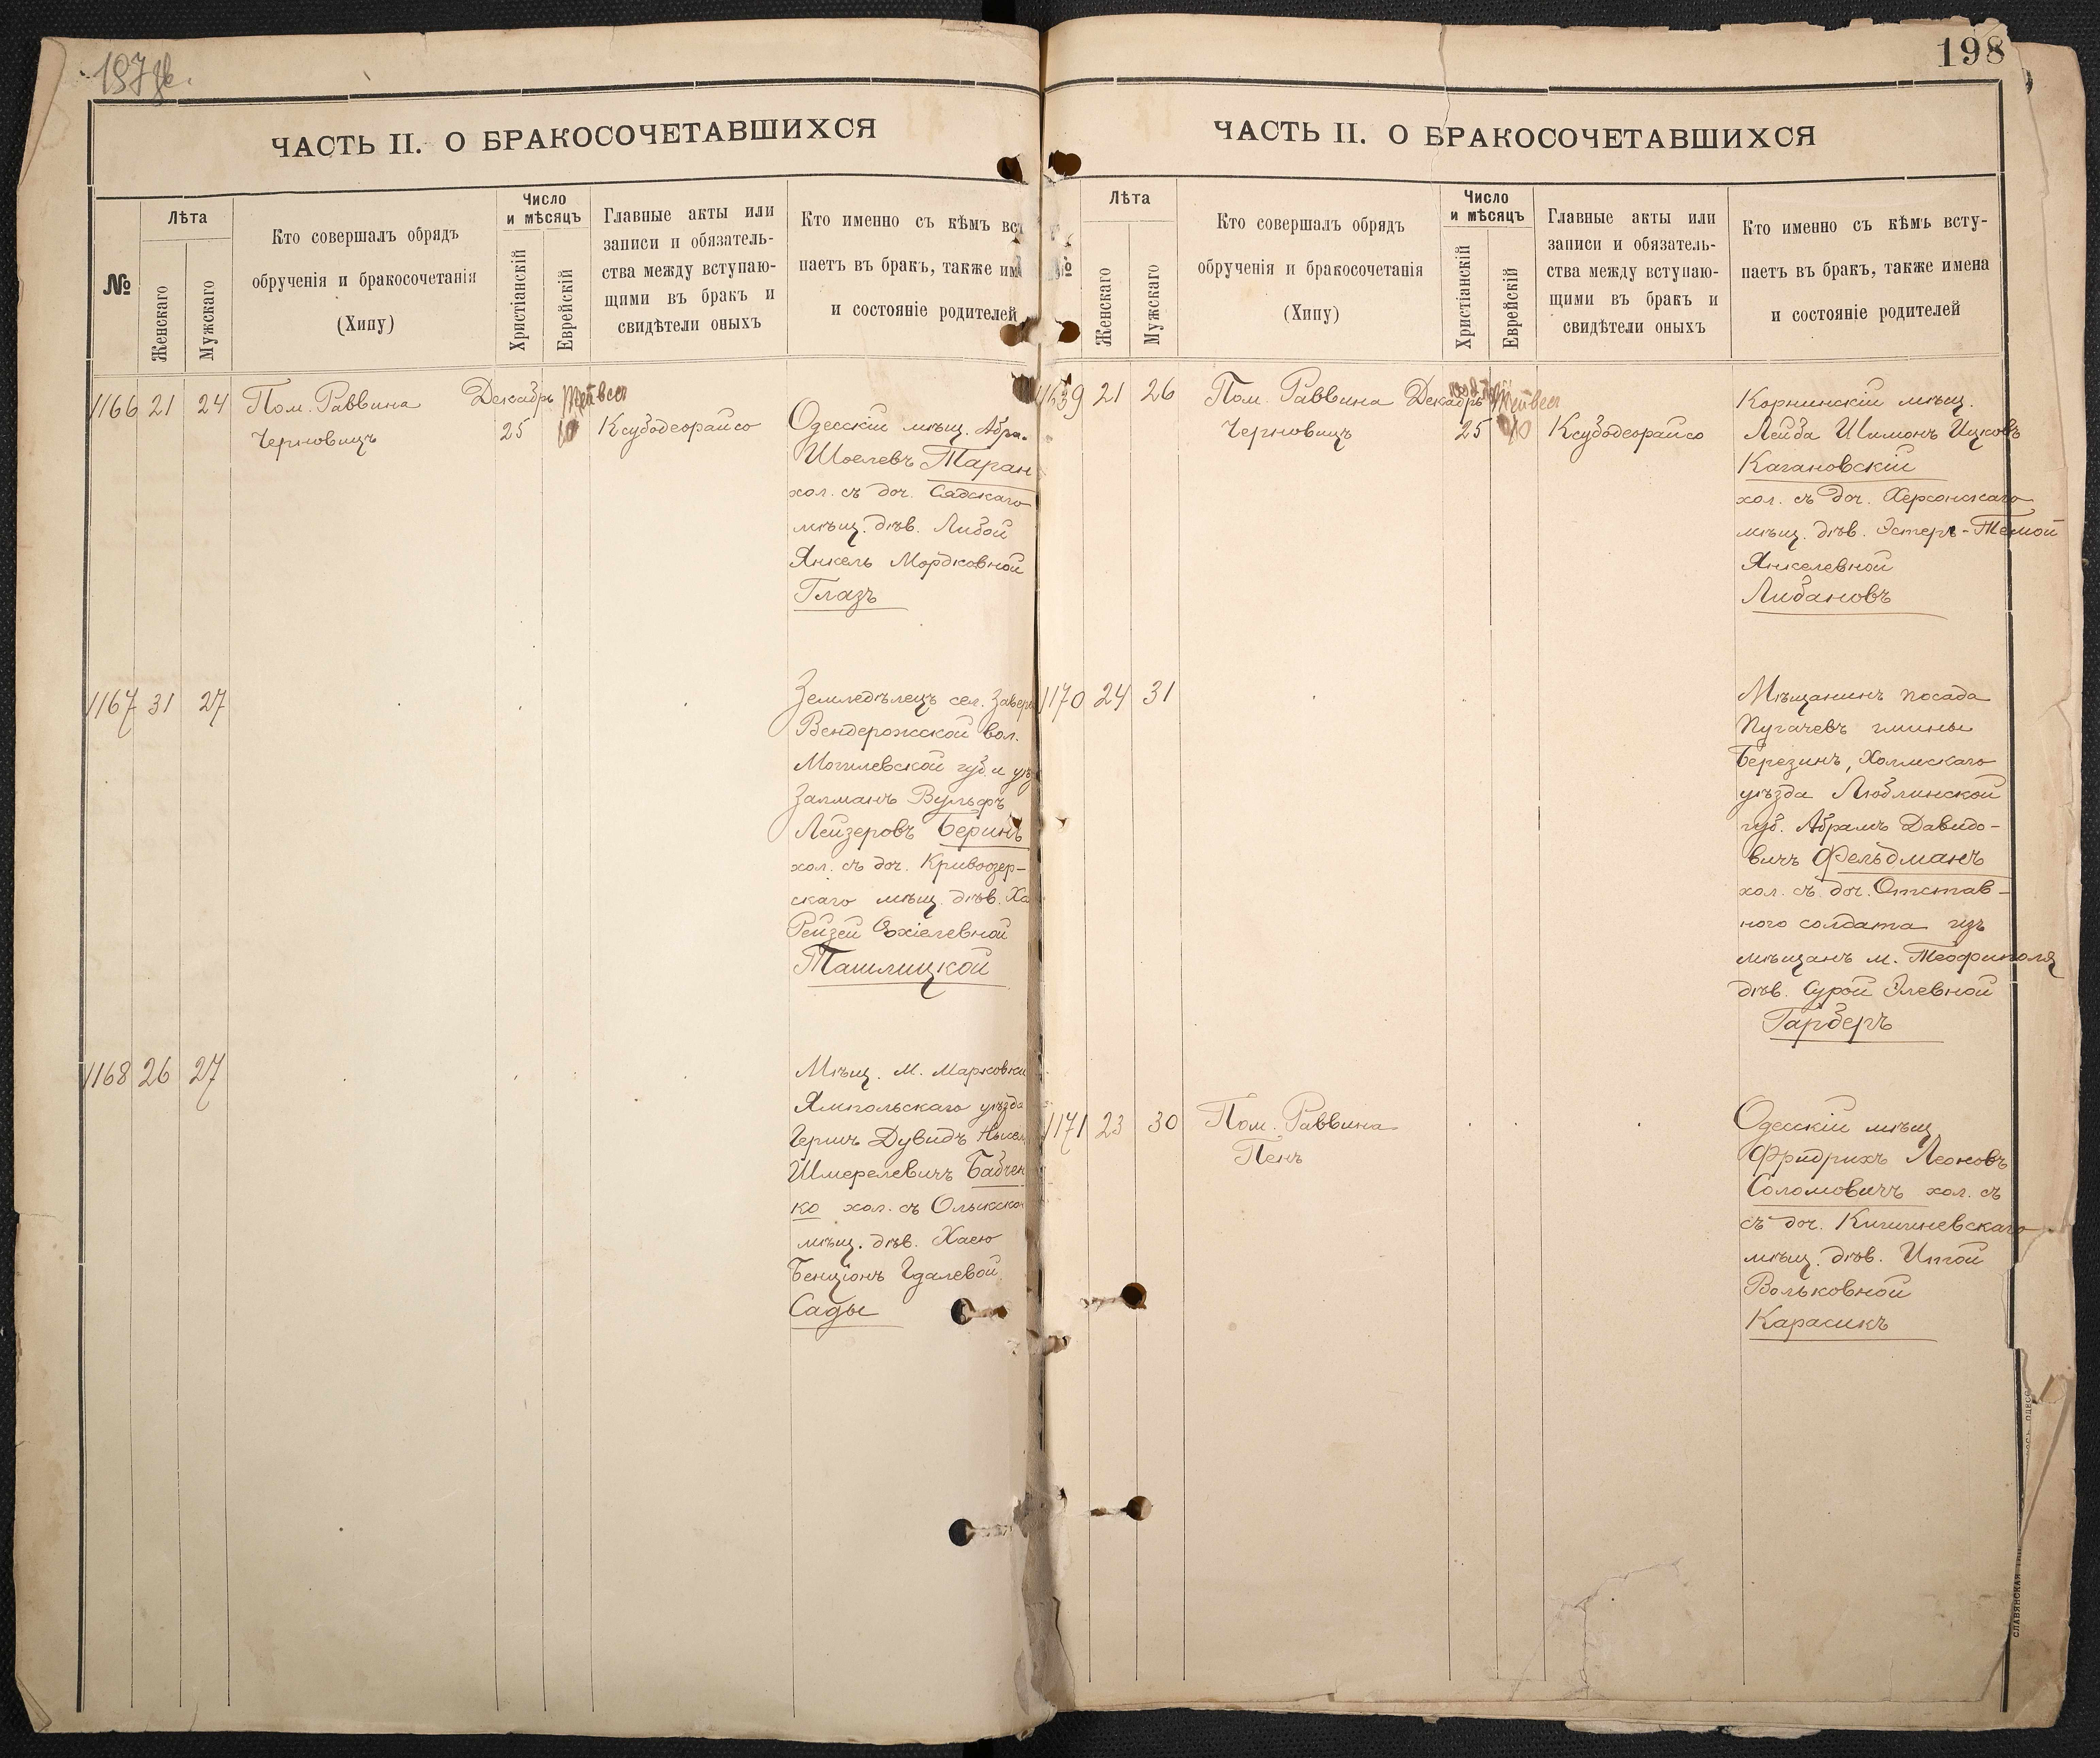 198
ЧАСТЬ II. О БРАКОСОЧЕТАВШИХСЯ
№
Лѣта
Женскаго
Мужскаго
Кто совершалъ обрядъ
обрученія и бракосочетанія
(Хипу)
Число
и мѣсяцъ
Христіанскій
Еврейскій
Главные акты или
записи и обязатель-
ства между вступаю-
щими въ бракъ и
свидѣтели оныхъ
Кто именно съ кѣмъ вст
паетъ въ бракъ, также им
и состояніе родителей
1166 21 24 Пом. Раввина Декабрь Тейвес
Черновицъ 25 10 Ксубодеорайсо
Одесскій мѣщ. Абра-
Шоелевъ Таран
хол. съ доч. Садскаго
мѣщ. дѣв. Либой
Янкель Мордковной
Глазъ
1167 31 27
Земледѣлецъ сел. Завер
Вендерожской вол.
Могилевской губ. и уѣз
Залманъ Вульфъ
Лейзеровъ Беринъ
хол. съ доч. Кривоозер-
скаго мѣщ. дѣв. Ха
Рейзей Іохіелевной
Ташлицкой
1168 26 27
Мѣщ. М. Марковки
Ямпольскаго уѣзда
Гершъ Дувидъ
Шмерелевичъ Бабчен
ко хол. съ Олыкско
мѣщ. дѣв. Хаею
Бенціонъ Гдалевой
Сады
ЧАСТЬ II. О БРАКОСОЧЕТАВШИХСЯ
№
Лѣта
Женскаго
Мужскаго
Кто совершалъ обрядъ
обрученія и бракосочетанія
(Хипу)
Число
и мѣсяцъ
Христіанскій
Еврейскій
Главные акты или
записи и обязатель-
ства между вступаю-
щими въ бракъ и
свидѣтели оныхъ
Кто именно съ кѣмъ всту-
паетъ въ бракъ, также имена
и состояніе родителей
21 26 Пом. Раввина Декабрь Тейвес
Черновицъ 25 10 Ксубодеорайсо
Корнинскій мѣщ.
Лейба Шимонъ Ицковъ
Кагановскій
хол. съ доч. Херсонскаго
мѣщ. дѣв. Эстеръ-Темой
Янкелевной
Либановъ
1170 24 31
Мѣщанинъ посада
Пугачевъ гмины
Березинъ, Холмскаго
уѣзда Люблинской
губ. Абрамъ Давидо-
вичъ Фельдманъ
хол. съ доч. Отстав-
ного солдата изъ
мѣщанъ м. Теофиполя
дѣв. Сурой Элевной
Гарберъ
1171 23 30 Пом. Раввина
Пенъ
Одесскій мѣщ
Фридрихъ Леоновъ
Соломовичъ хол. съ
съ доч. Кишиневскаго
мѣщ. дѣв. Итой
Вольковной
Карасикъ